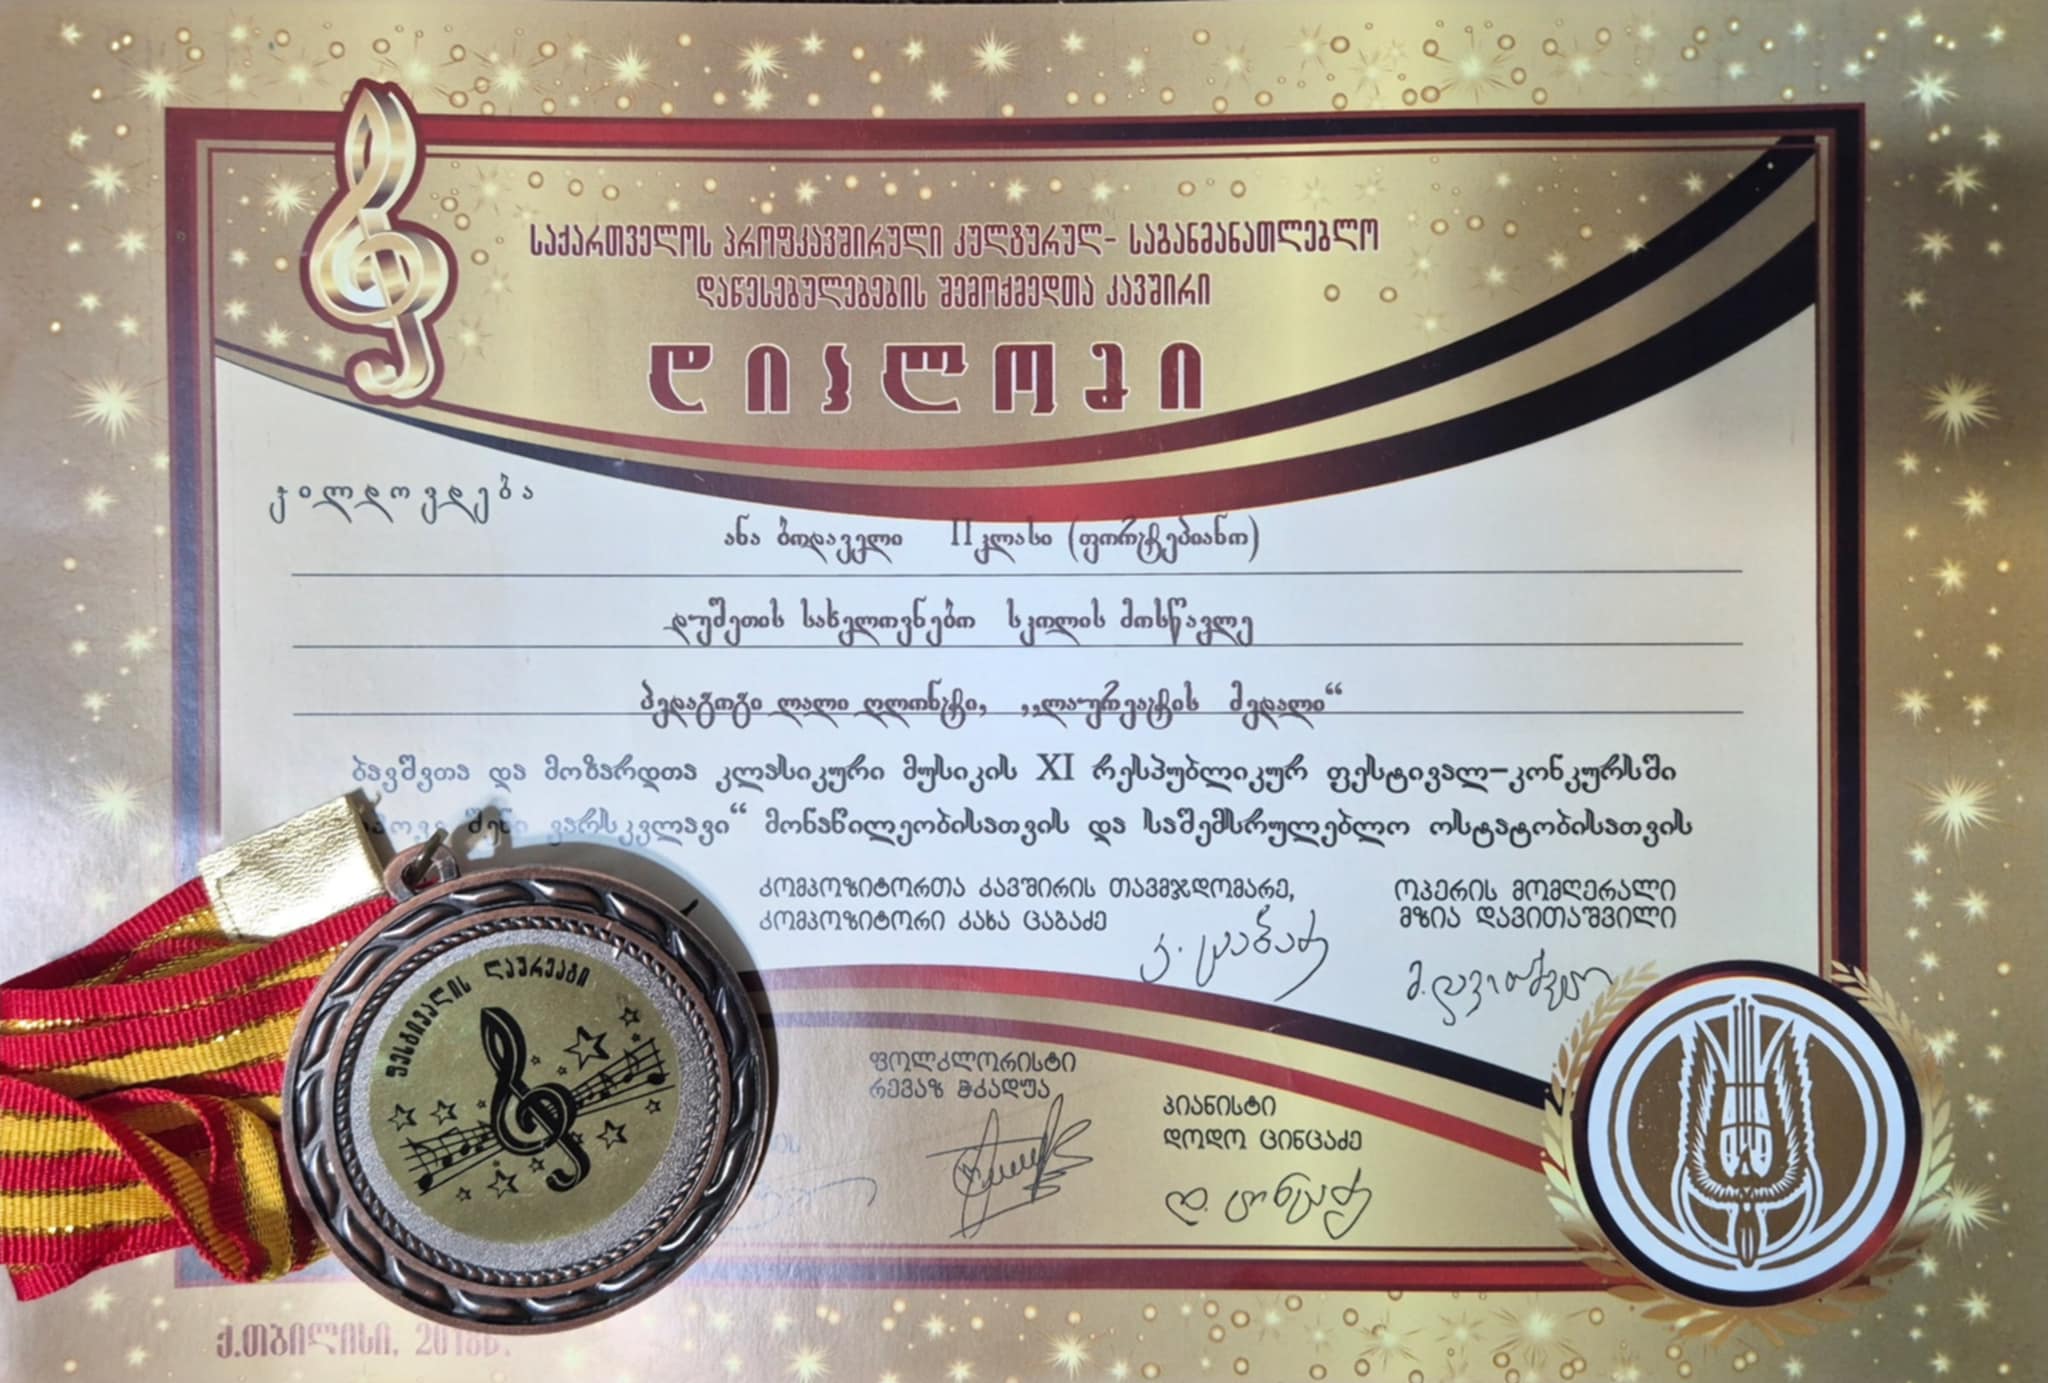 საქართველოს პროფკავშირული კულტურულ- საგანმანათლებლო
დაწესებულებების შემოქმედთა კავშირი
დიპლომი
ჯილდოვდება
ანა ბოდაველი II კლასი (ფორტეპიანო)
დუშეთის სახელოვნებო სკოლის მოსწავლე
პედაგოგი ლალი ღლონტი, ,,ლაურეატის მედალი“
ბავშვთა და მოზარდთა კლასიკური მუსიკის XI რესპუბლიკურ ფესტივალ-კონკურსში
შენი ვარსკვლავი“ მონაწილეობისათვის და საშემსრულებლო ოსტატობისათვის
კომპოზიტორთა კავშირის თავმჯდომარე,
კომპოზიტორი კახა ცაბაძე
კ. ცაბაძე
ოპერის მომღერალი
მზია დავითაშვილი
ფესტივალის ლაურეატი
ფოლკლორისტი
რევაზ
პიანისტი
დოდო ცინცაძე
დ. ცინცაძე
ქ.თბილისი, 2018წ.